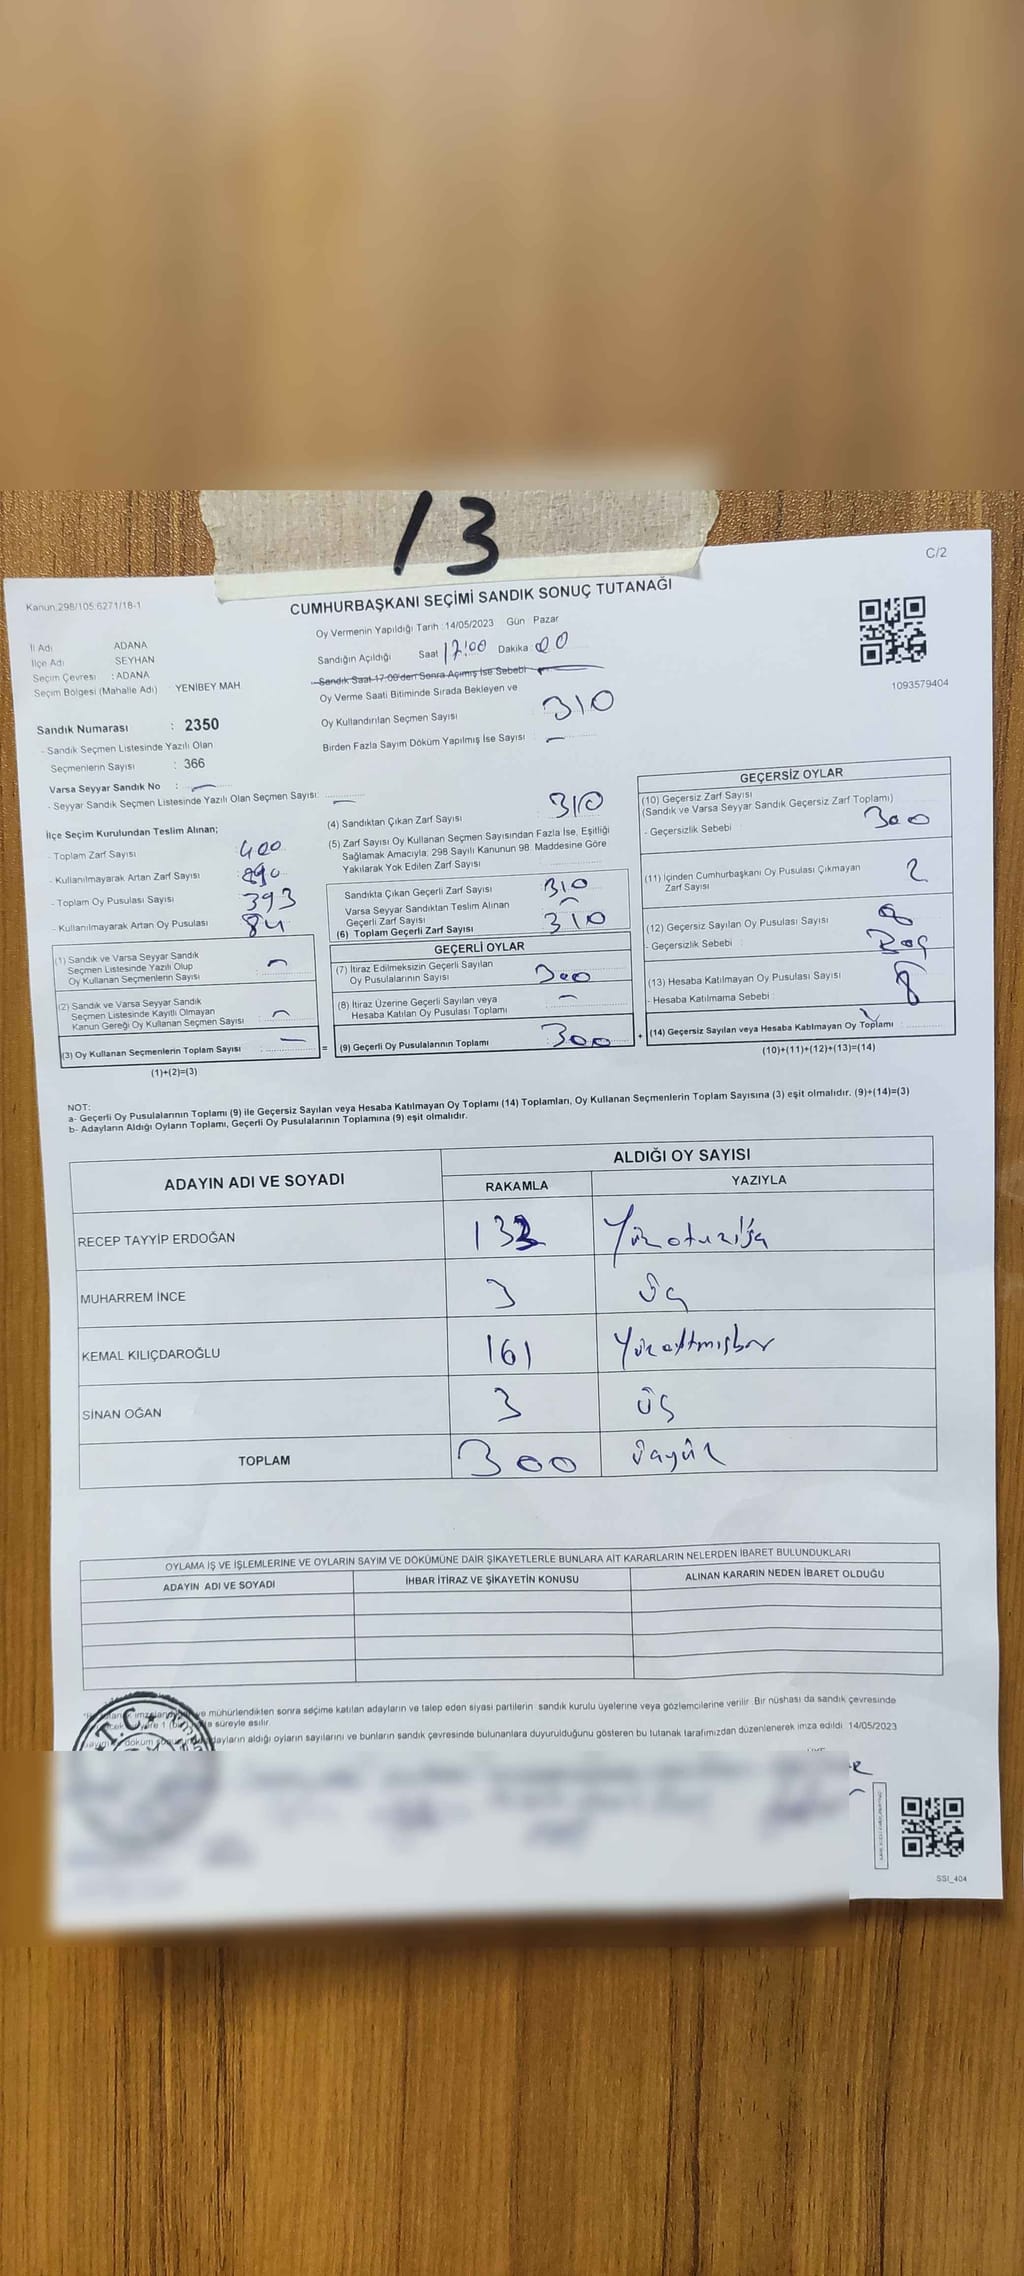 13
C/2
Kanun:298/105:6271/18-1
CUMHURBAŞKANI SEÇİMİ SANDIK SONUÇ TUTANAĞI
Oy Vermenin Yapıldığı Tarih :14/05/2023 Gün Pazar
İl Adı ADANA
İlçe Adı SEYHAN
Seçim Çevresi : ADANA
Seçim Bölgesi (Mahalle Adı) YENİBEY MAH.
Sandığın Açıldığı Saat 17:00 Dakika 00
Sandık Saat 17:00'den Sonra Açımış İse Sebebi
Oy Verme Saati Bitiminde Sırada Bekleyen ve
Oy Kullandırılan Seçmen Sayısı 310
Birden Fazla Sayım Döküm Yapılmış İse Sayısı : –
1093579404
Sandık Numarası : 2350
- Sandık Seçmen Listesinde Yazılı Olan
Seçmenlerin Sayısı : 366
Varsa Seyyar Sandık No : –
- Seyyar Sandık Seçmen Listesinde Yazılı Olan Seçmen Sayısı: –
İlçe Seçim Kurulundan Teslim Alınan;
- Toplam Zarf Sayısı 400
- Kullanılmayarak Artan Zarf Sayısı
- Toplam Oy Pusulası Sayısı 393
- Kullanılmayarak Artan Oy Pusulası 84
(1) Sandık ve Varsa Seyyar Sandık
Seçmen Listesinde Yazılı Olup
Oy Kullanan Seçmenlerin Sayısı –
(2) Sandık ve Varsa Seyyar Sandık
Seçmen Listesinde Kayıtlı Olmayan
Kanun Gereği Oy Kullanan Seçmen Sayısı –
(3) Oy Kullanan Seçmenlerin Toplam Sayısı –
(1)+(2)=(3)
(4) Sandıktan Çıkan Zarf Sayısı 310
(5) Zarf Sayısı Oy Kullanan Seçmen Sayısından Fazla İse, Eşitliği
Sağlamak Amacıyla; 298 Sayılı Kanunun 98. Maddesine Göre
Yakılarak Yok Edilen Zarf Sayısı
Sandıkta Çıkan Geçerli Zarf Sayısı 310
Varsa Seyyar Sandıktan Teslim Alınan
Geçerli Zarf Sayısı –
(6) Toplam Geçerli Zarf Sayısı 310
GEÇERLİ OYLAR
(7) İtiraz Edilmeksizin Geçerli Sayılan
Oy Pusulalarının Sayısı 300
(8) İtiraz Üzerine Geçerli Sayılan veya
Hesaba Katılan Oy Pusulası Toplamı –
= (9) Geçerli Oy Pusulalarının Toplamı 300
GEÇERSİZ OYLAR
(10) Geçersiz Zarf Sayısı
(Sandık ve Varsa Seyyar Sandık Geçersiz Zarf Toplamı)
- Geçersizlik Sebebi 300
(11) İçinden Cumhurbaşkanı Oy Pusulası Çıkmayan
Zarf Sayısı 2
(12) Geçersiz Sayılan Oy Pusulası Sayısı 8
- Geçersizlik Sebebi : Boş
(13) Hesaba Katılmayan Oy Pusulası Sayısı 8
- Hesaba Katılmama Sebebi :
+ (14) Geçersiz Sayılan veya Hesaba Katılmayan Oy Toplamı
(10)+(11)+(12)+(13)=(14)
NOT:
a- Geçerli Oy Pusulalarının Toplamı (9) ile Geçersiz Sayılan veya Hesaba Katılmayan Oy Toplamı (14) Toplamları, Oy Kullanan Seçmenlerin Toplam Sayısına (3) eşit olmalıdır. (9)+(14)=(3)
b- Adayların Aldığı Oyların Toplamı, Geçerli Oy Pusulalarının Toplamına (9) eşit olmalıdır.
ADAYIN ADI VE SOYADI ALDIĞI OY SAYISI
RAKAMLA YAZIYLA
RECEP TAYYİP ERDOĞAN 133 Yüzotuzüç
MUHARREM İNCE 3 Üç
KEMAL KILIÇDAROĞLU 161 Yüzaltmışbir
SİNAN OĞAN 3 üç
TOPLAM 300 üçyüz
OYLAMA İŞ VE İŞLEMLERİNE VE OYLARIN SAYIM VE DÖKÜMÜNE DAİR ŞİKAYETLERLE BUNLARA AİT KARARLARIN NELERDEN İBARET BULUNDUKLARI
ADAYIN ADI VE SOYADI İHBAR İTİRAZ VE ŞİKAYETİN KONUSU ALINAN KARARIN NEDEN İBARET OLDUĞU
ve mühürlendikten sonra seçime katılan adayların ve talep eden siyasi partilerin sandık kurulu üyelerine veya gözlemcilerine verilir. Bir nüshası da sandık çevresinde
süreyle asılır.
adayların aldığı oyların sayılarını ve bunların sandık çevresinde bulunanlara duyurulduğunu gösteren bu tutanak tarafımızdan düzenlenerek imza edildi. 14/05/2023
T.C.
SSI_404